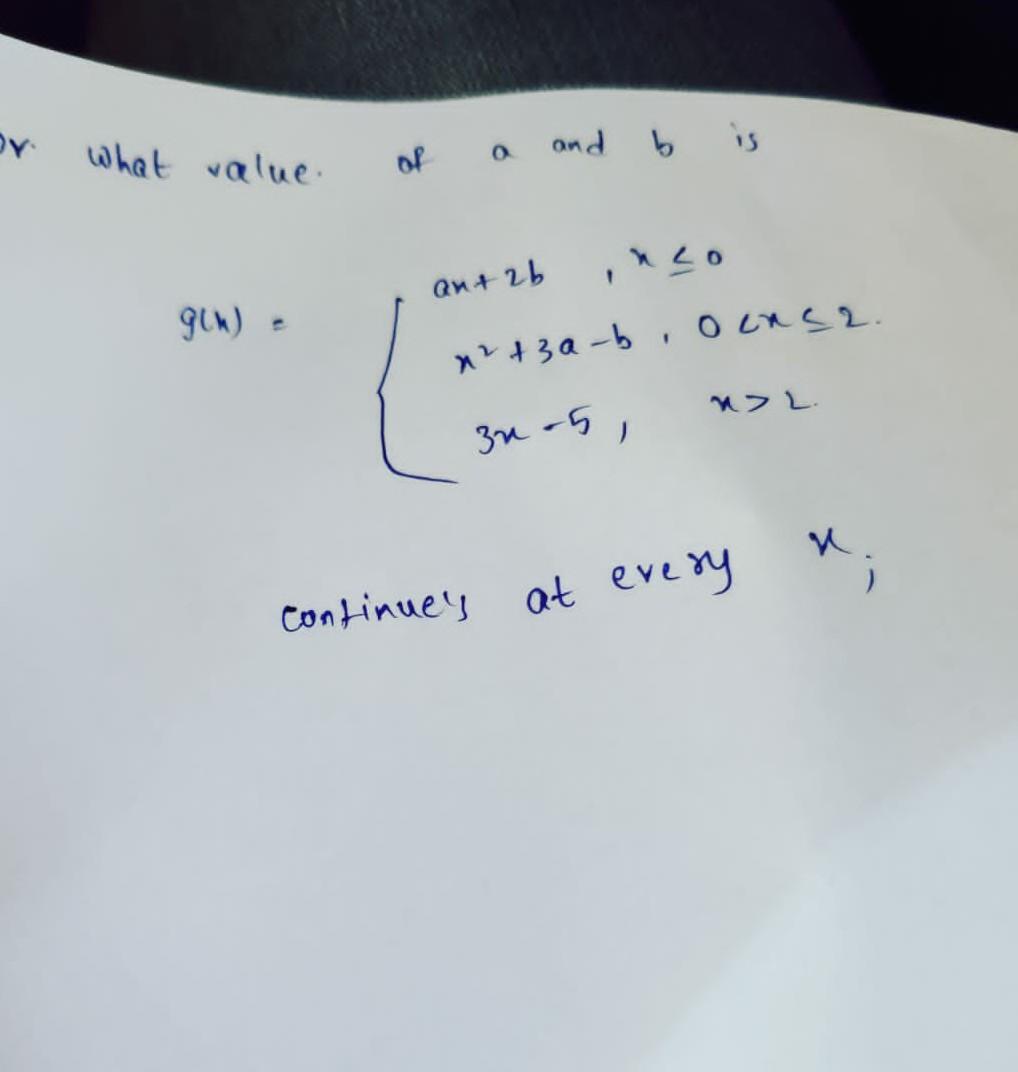 or. what value. of a and b is
g(x) = { ax+2b , x ≤ 0
x² + 3a - b , 0 < x ≤ 2.
3x - 5 , x > 2.
continue's at every x ;